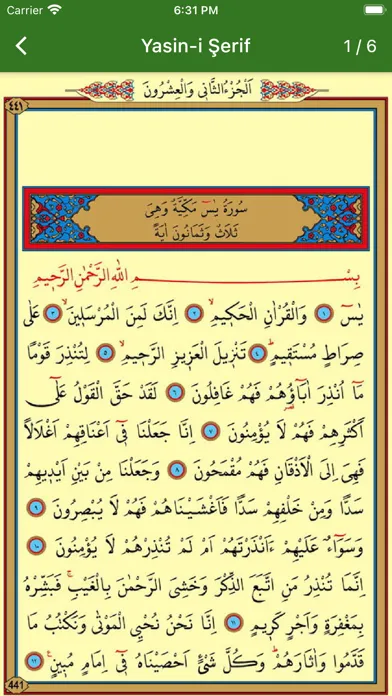 Carrier 6:31 PM
Yasin-i Şerif 1 / 6
اَلْجُزْءُ الثَّانٖى وَالْعِشْرُونَ
٤٤١
سُورَةُ يٰسٓ مَكِّيَّةٌ وَهِىَ
ثَلَاثٌ وَثَمَانُونَ اٰيَةً
بِسْمِ اللّٰهِ الرَّحْمٰنِ الرَّحٖيمِ
يٰسٓ ﴿١﴾ وَالْقُرْاٰنِ الْحَكٖيمِۙ ﴿٢﴾ اِنَّكَ لَمِنَ الْمُرْسَلٖينَۙ ﴿٣﴾ عَلٰى
صِرَاطٍ مُسْتَقٖيمٍؕ ﴿٤﴾ تَنْزٖيلَ الْعَزٖيزِ الرَّحٖيمِۙ ﴿٥﴾ لِتُنْذِرَ قَوْمًا
مَٓا اُنْذِرَ اٰبَٓاؤُ۬هُمْ فَهُمْ غَافِلُونَ ﴿٦﴾ لَقَدْ حَقَّ الْقَوْلُ عَلٰٓى
اَكْثَرِهِمْ فَهُمْ لَا يُؤْمِنُونَ ﴿٧﴾ اِنَّا جَعَلْنَا فٖٓى اَعْنَاقِهِمْ اَغْلَالًا
فَهِىَ اِلَى الْاَذْقَانِ فَهُمْ مُقْمَحُونَ ﴿٨﴾ وَجَعَلْنَا مِنْ بَيْنِ اَيْدٖيهِمْ
سَدًّا وَمِنْ خَلْفِهِمْ سَدًّا فَاَغْشَيْنَاهُمْ فَهُمْ لَا يُبْصِرُونَ ﴿٩﴾
وَسَوَٓاءٌ عَلَيْهِمْ ءَاَنْذَرْتَهُمْ اَمْ لَمْ تُنْذِرْهُمْ لَا يُؤْمِنُونَ ﴿١٠﴾
اِنَّمَا تُنْذِرُ مَنِ اتَّبَعَ الذِّكْرَ وَخَشِىَ الرَّحْمٰنَ بِالْغَيْبِۚ فَبَشِّرْهُ
بِمَغْفِرَةٍ وَاَجْرٍ كَرٖيمٍ ﴿١١﴾ اِنَّا نَحْنُ نُحْيِ الْمَوْتٰى وَنَكْتُبُ مَا
قَدَّمُوا وَاٰثَارَهُمْؕ وَكُلَّ شَىْءٍ اَحْصَيْنَاهُ فٖٓى اِمَامٍ مُبٖينٍ۟ ﴿١٢﴾
441